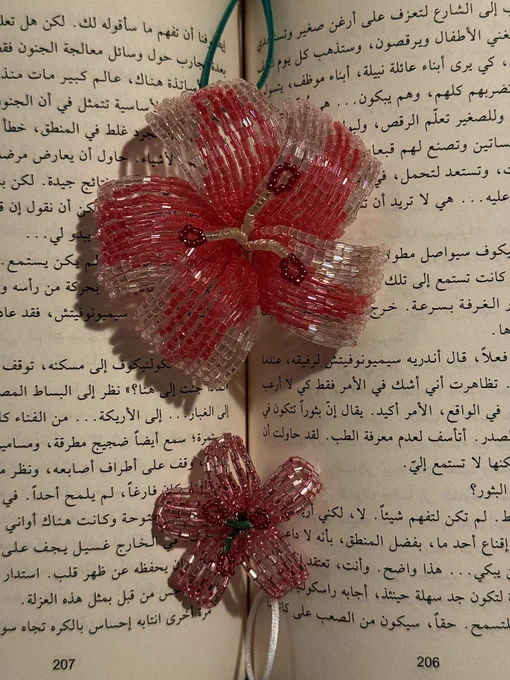 ب إلى الشارع لتعزف على أرغن صغير وتستجدي
يغني الأطفال ويرقصون، وستذهب كل يوم
، كي يرى أبناء عائلة نبيلة، أبناء موظف،
تضربهم كلهم، وهم يبكون... هي
وللصغير تعلّم الرقص،
ساتين وتصنع لهم قبعا
ت، وتستعد لتحمل، في
عليه... هي لا تريد أن
يكوف سيواصل
كانت تستمع إلى تلك
الغرفة بسرعة. خرج
ها.
فعلاً، قال أندريه سيميونوفيتش لرفيقه، عندما
. تظاهرت أني أشك في الأمر فقط كي لا أرعب
في الواقع، الأمر أكيد. يقال إنّ بثوراً تتكون في
صدر. أتأسف لعدم معرفة الطب. لقد حاولت أن
كنها لا تستمع إليّ.
البثور؟
ط. لم تكن لتفهم شيئاً. لا،
إقناع أحد ما، بفضل المنطق، بأنه لا
يبكي... هذا واضح. وأنت، تعتقد
تكون جد سهلة حينئذ، أجابه
حقاً، سيكون من الصعب على
206
فنا أن تفهم ما سأقوله لك. لكن هل
تجارب حول وسائل معالجة الجنون
هناك، عالم كبير مات
الأساسية تتمثل في أن
مجرد غلط في المنطق، خطأ
الأشياء. حاول أن يعارض
نتائج جيدة. لكن
لكن أن نقول إن
يبدو لي...
لم يكن يستمع.
بحركة من رأسه
سيميونوفيتش، فقد
إلى مسكنه، توقف
جئت إلى هنا؟» نظر إلى البساط
إلى الغبار... إلى الأريكة... من الفناء
سمع أيضاً ضجيج مطرقة،
وقف على أطراف أصابعه، ونظر
فارغاً، لم يلمح أحداً. في
وكانت هناك أواني
في الخارج غسيل يجف على
يحفظه عن ظهر قلب. استدار
من قبل بمثل هذه العزلة.
مرة أخرى انتابه إحساس بالكره تجاه
207